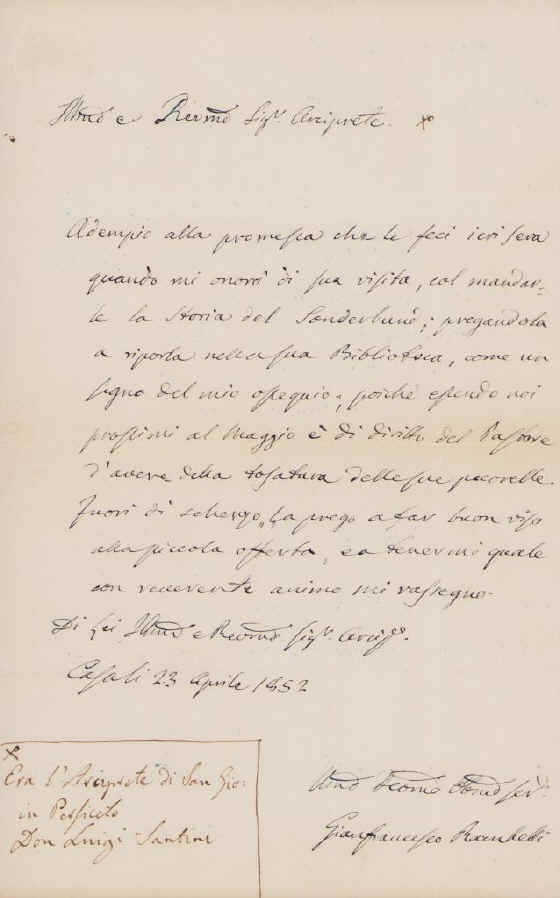 Illmo e Revmo Sigr. Arciprete. x
Adempio alla promessa che le feci ieri sera
quando mi onorò di sua visita, col mandar-
le la Storia del Sonderbund; pregandola
a riporla nella sua Biblioteca, come un
segno del mio ossequio; poiché essendo noi
prossimi al Maggio è di diritto del Pastore
d'avere della tosatura delle sue pecorelle.
Fuori di scherzo, La prego a far buon viso
alla piccola offerta, e a tenermi quale
con reverente animo mi rassegno.
Di Lei Illmo e Revmo Sigr. Arcipe.
Casa li 23 Aprile 1852
Umo Devmo Obmo Serv.
Gianfrancesco Rambelli
x
Era l'Arciprete di San Gio:
in Persiceto
Don Luigi Santini